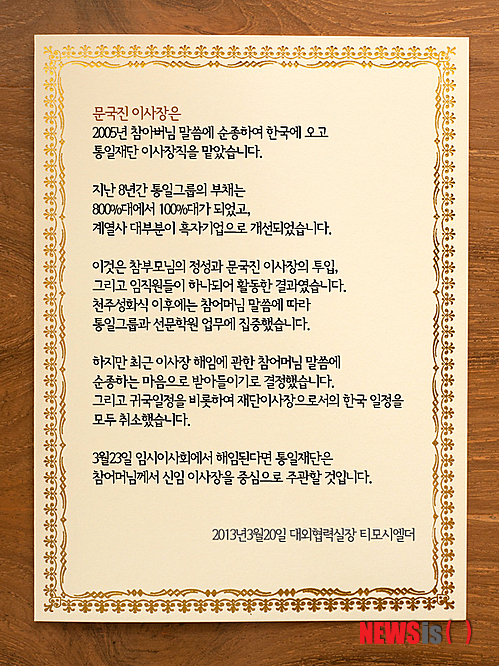 문국진 이사장은
2005년 참아버님 말씀에 순종하여 한국에 오고
통일재단 이사장직을 맡았습니다.
지난 8년간 통일그룹의 부채는
800%대에서 100%대가 되었고,
계열사 대부분이 흑자기업으로 개선되었습니다.
이것은 참부모님의 정성과 문국진 이사장의 투입,
그리고 임직원들이 하나되어 활동한 결과였습니다.
천주성화식 이후에는 참어머님 말씀에 따라
통일그룹과 선문학원 업무에 집중했습니다.
하지만 최근 이사장 해임에 관한 참어머님 말씀에
순종하는 마음으로 받아들이기로 결정했습니다.
그리고 귀국일정을 비롯하여 재단이사장으로서의 한국 일정을
모두 취소했습니다.
3월23일 임시이사회에서 해임된다면 통일재단은
참어머님께서 신임 이사장을 중심으로 주관할 것입니다.
2013년3월20일 대외협력실장 티모시엘더
NEWSis( )